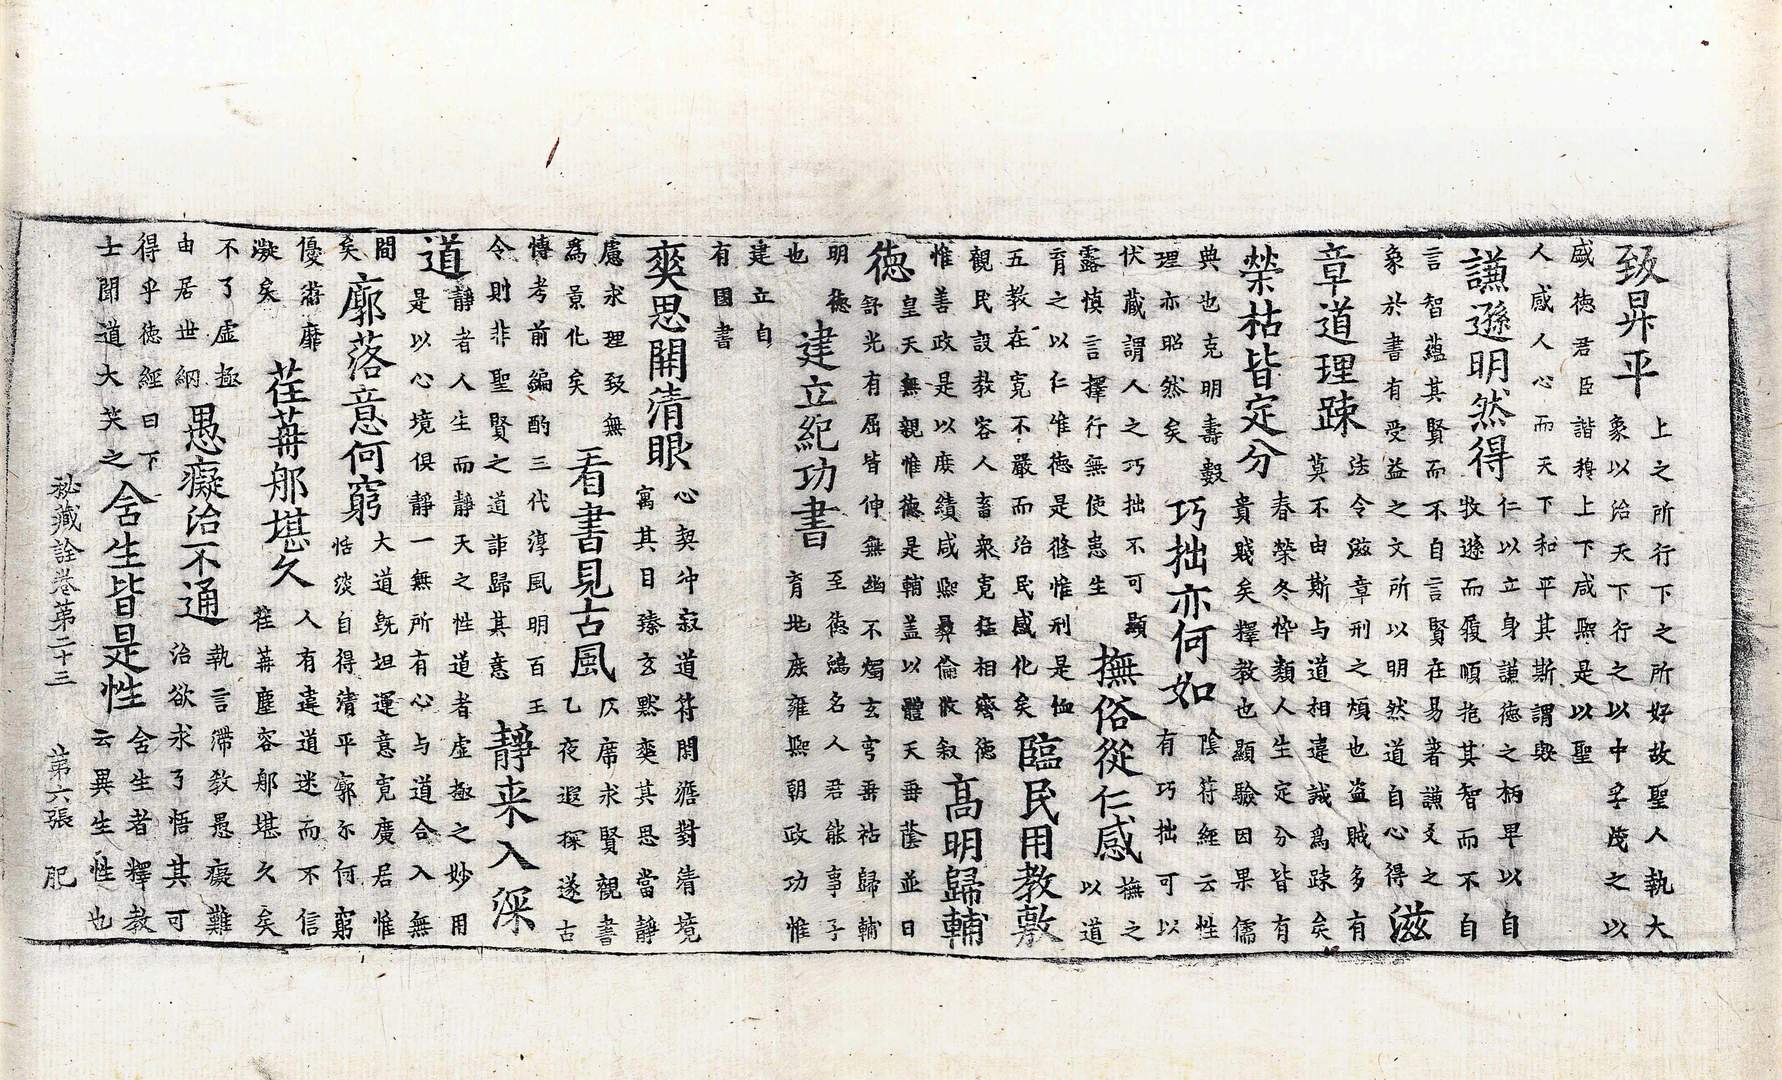 致昇平
上之所行下之所好故聖人執大
象以治天下行之以中孚茂之以
咸德君臣諧穆上下咸熙是以聖
人感人心而天下和平其斯謂歟
謙遜明然得
仁以立身謙德之柄卑以自
牧遜而履順抱其智而不自
言智蘊其賢而不自言賢在易著謙爻之
象於書有受益之文所以明然道自心得
滋
章道理踈
法令滋章刑之煩也盜賊多有
莫不由斯与道相違誠為踈矣
榮枯皆定分
春榮冬悴類人生定分皆有
貴賤矣釋教也顯驗因果儒
典也克明壽數
理亦昭然矣
巧拙亦何如
陰符經云性
有巧拙可以
伏藏謂人之巧拙不可顯
露慎言擇行無使患生
撫俗從仁感
撫之
以道
育之以仁惟德是修惟刑是恤
五教在寬不嚴而治民感化矣
臨民用教敷
觀民設教容人畜衆寬猛相濟德
惟善政是以庶績咸熙彝倫攸叙
高明歸輔
德
皇天無親惟德是輔蓋以體天垂蔭並日
舒光有屈皆伸無幽不燭玄穹垂祜歸輔
明德
也
建立紀功書
至德鴻名人君能事子
育地庶雍熙朝政功惟
建立自
有國書
爽思開清眼
心契冲寂道符閑澹對清境
寓其目臻玄默爽其思當靜
慮求理致無
為景化矣
看書見古風
仄席求賢親書
乙夜遐探遂古
博考前編酌三代淳風明百王
令則非聖賢之道詎歸其意
靜来入深
道
靜者人生而靜天之性道者虛極之妙用
是以心境俱靜一無所有心与道合入無
間
矣
廓落意何窮
大道既坦運意寬廣居惟
恬淡自得清平廓尔何窮
優游靡
凝矣
荏苒那堪久
人有違道迷而不信
荏苒塵容那堪久矣
不了虛極
由居世網
愚癡治不通
執言滯教愚癡難
治欲求了悟其可
得乎德經曰下
士聞道大笑之
舍生皆是性
舍生者釋教
云異生性也
秘藏詮卷第二十三 第六張 肥